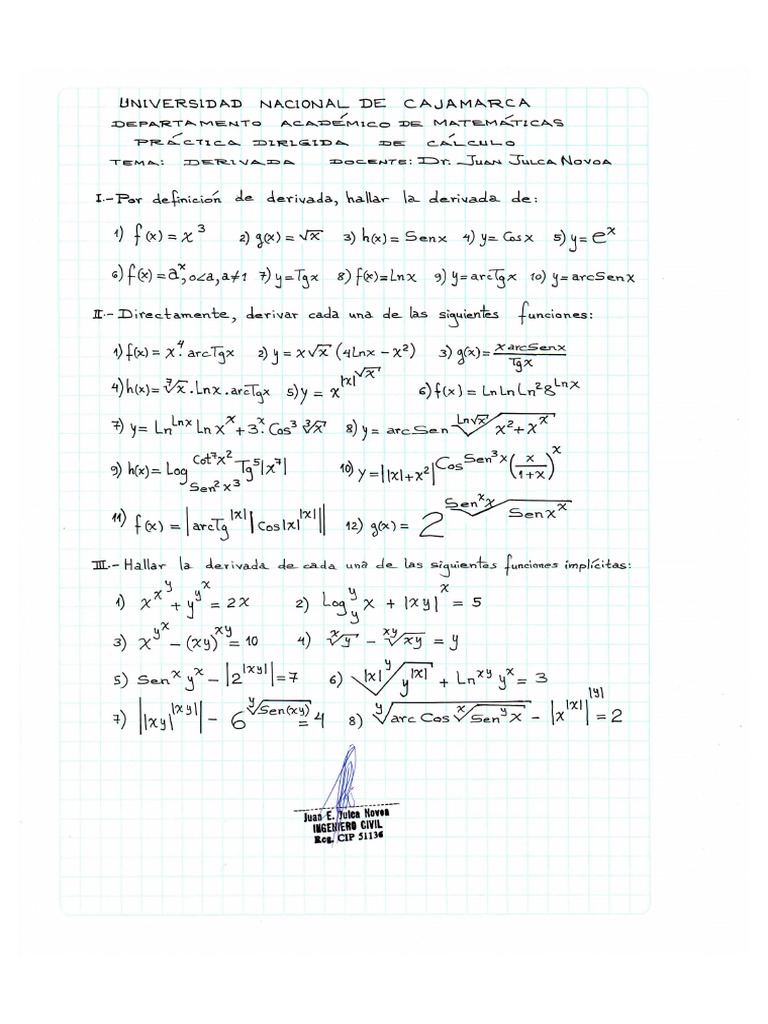 UNIVERSIDAD NACIONAL DE CAJAMARCA
DEPARTAMENTO ACADÉMICO DE MATEMÁTICAS
PRÁCTICA DIRIGIDA DE CÁLCULO
TEMA: DERIVADA DOCENTE: Dr. JUAN JULCA NOVOA
I.- Por definición de derivada, hallar la derivada de:
1) f(x) = x^3 2) g(x) = √x 3) h(x) = Senx 4) y = Cosx 5) y = e^x
6) f(x) = a^x, 0<a, a≠1 7) y = Tgx 8) f(x) = Lnx 9) y = arcTgx 10) y = arcSenx
II.- Directamente, derivar cada una de las siguientes funciones:
1) f(x) = x^4. arcTgx 2) y = x√x (4Lnx - x^2) 3) g(x) = (x arcSenx)/(Tgx)
4) h(x) = ⁷√x . Lnx . arcTgx 5) y = x^(|x|^(√x)) 6) f(x) = Ln Ln Ln^2 8^(Lnx)
7) y = Ln^(Lnx) Ln x^x + 3^x. Cos^3 ³√x 8) y = arc Sen ^(Ln√x)√(x^2 + x^x)
9) h(x) = Log_(Sen^2 x^3)^(Cot^7 x^2) Tg^5|x^7| 10) y = ||x|+x^2|^(Cos^(Sen^3 x) (x/(1+x))^x)
11) f(x) = |arcTg^|x| |Cos|x|^|x||| 12) g(x) = 2^(^(Sen^x x)√(Sen x^x))
III.- Hallar la derivada de cada una de las siguientes funciones implícitas:
1) x^(x^y) + y^(y^x) = 2x 2) Log_y^y x + |xy|^x = 5
3) x^(y^x) - (xy)^(xy) = 10 4) ^x√y - ^(xy)√(xy) = y
5) Sen^x y^x - |2^|xy|| = 7 6) ^(|x|^y)√(y^|x|) + Ln^(xy) y^x = 3
7) ||xy|^|xy|| - 6^(^y√Sen(xy)) = 4 8) ^y√(arc Cos ^x√(Sen^y x)) - |x^|x||^|y| = 2
Juan E. Julca Novoa
INGENIERO CIVIL
Reg. CIP 51136